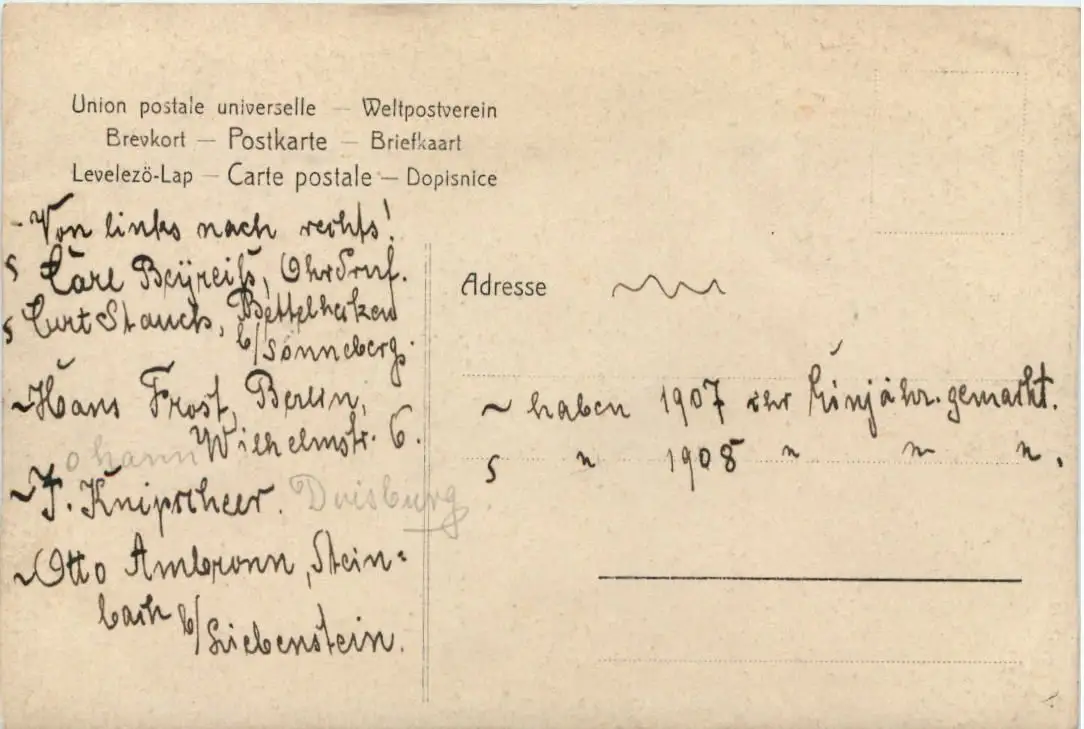 Union postale universelle — Weltpostverein
Brevkort — Postkarte — Briefkaart
Levelezö-Lap — Carte postale — Dopisnice
- Von links nach rechts!
Carl Beyreiß, Ohrdruf.
Curt Stauch, Bettelhecken
b/Sonneberg.
~Hans Frost, Berlin,
Wilhelmstr. 6.
ohann
~J. Knipscheer. Duisburg
~Otto Ambronn, Stein-
bach b/Liebenstein.
Adresse
~ haben 1907 ihr Einjähr. gemacht.
" 1908 " " ".